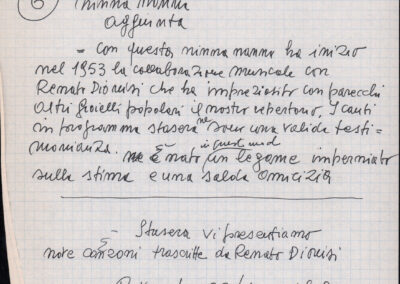 6 ninna nanna
aggiunta
= con questa ninna nanna ha inizio
nel 1953 la collaborazione musicale con
Renato Dionisi che ha impreziosito con parecchi
altri gioielli popolari il nostro repertorio. I canti
in programma stasera ne sono una valida testi=
monianza. È nato in quel modo un legame imperniato
sulla stima e una salda amicizia
- Stasera vi presentiamo
note canzoni trascritte da Renato Dionisi